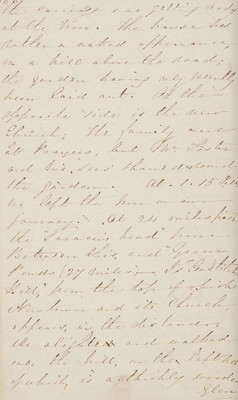 the carriage was getting ready
at the Inn. The house has
rather a naked appearance,
on a hill above the road;
the garden having only recently
been laid out. On the
opposite side is the new
Church; The family were
at Prayers, but Mr. Foster
and his sons showed us round
the garden. At 1.15 P.M.
we left the Inn on our
journey. At 24 miles pass
the "Saracens head" Inn
Between this, and "Green
Ponds" (27 miles) is Constitution
Hill, from the top of which
and its Church
appears, in the distance.
We alighted and walked
over the hill, on the left hand
of which, is a thickly wooded
Glen